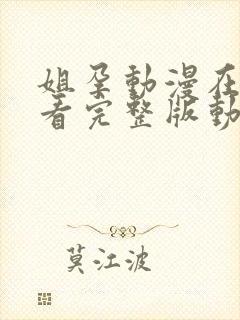 姐孕動漫在
看完整版動
莫江波